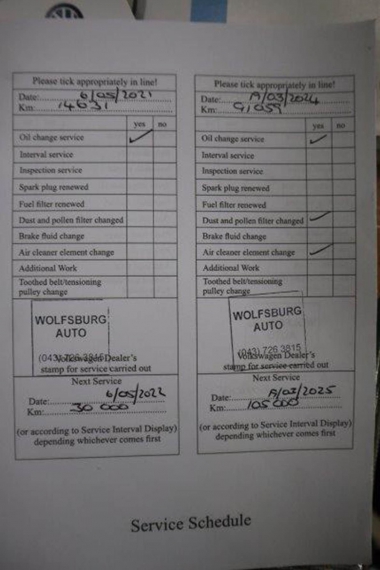 Please tick appropriately in line!
Date: 6/05/2021
Km: 14631
yes no
Oil change service
Interval service
Inspection service
Spark plug renewed
Fuel filter renewed
Dust and pollen filter changed
Brake fluid change
Air cleaner element change
Additional Work
Toothed belt/tensioning
pulley change
WOLFSBURG
AUTO
(043) 726 3815
Volkswagen Dealer's
stamp for service carried out
Next Service
Date: 6/05/2022
Km: 30 000
(or according to Service Interval Display)
depending whichever comes first
Please tick appropriately in line!
Date: /03/2024
Km: 91059
yes no
Oil change service
Interval service
Inspection service
Spark plug renewed
Fuel filter renewed
Dust and pollen filter changed
Brake fluid change
Air cleaner element change
Additional Work
Toothed belt/tensioning
pulley change
WOLFSBURG
AUTO
(043) 726 3815
Volkswagen Dealer's
stamp for service carried out
Next Service
Date: /03/2025
Km: 105 000
(or according to Service Interval Display)
depending whichever comes first
Service Schedule